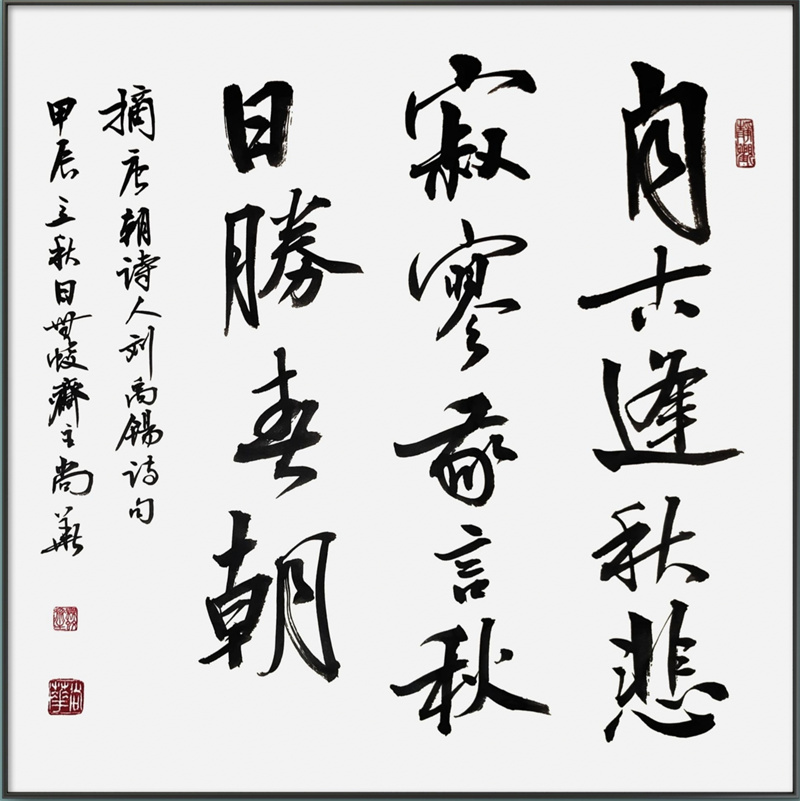 静觀
自古逢秋悲
寂寥我言秋
日勝春朝
摘唐朝诗人刘禹锡诗句
甲辰立秋日無齋主尚華
尚華